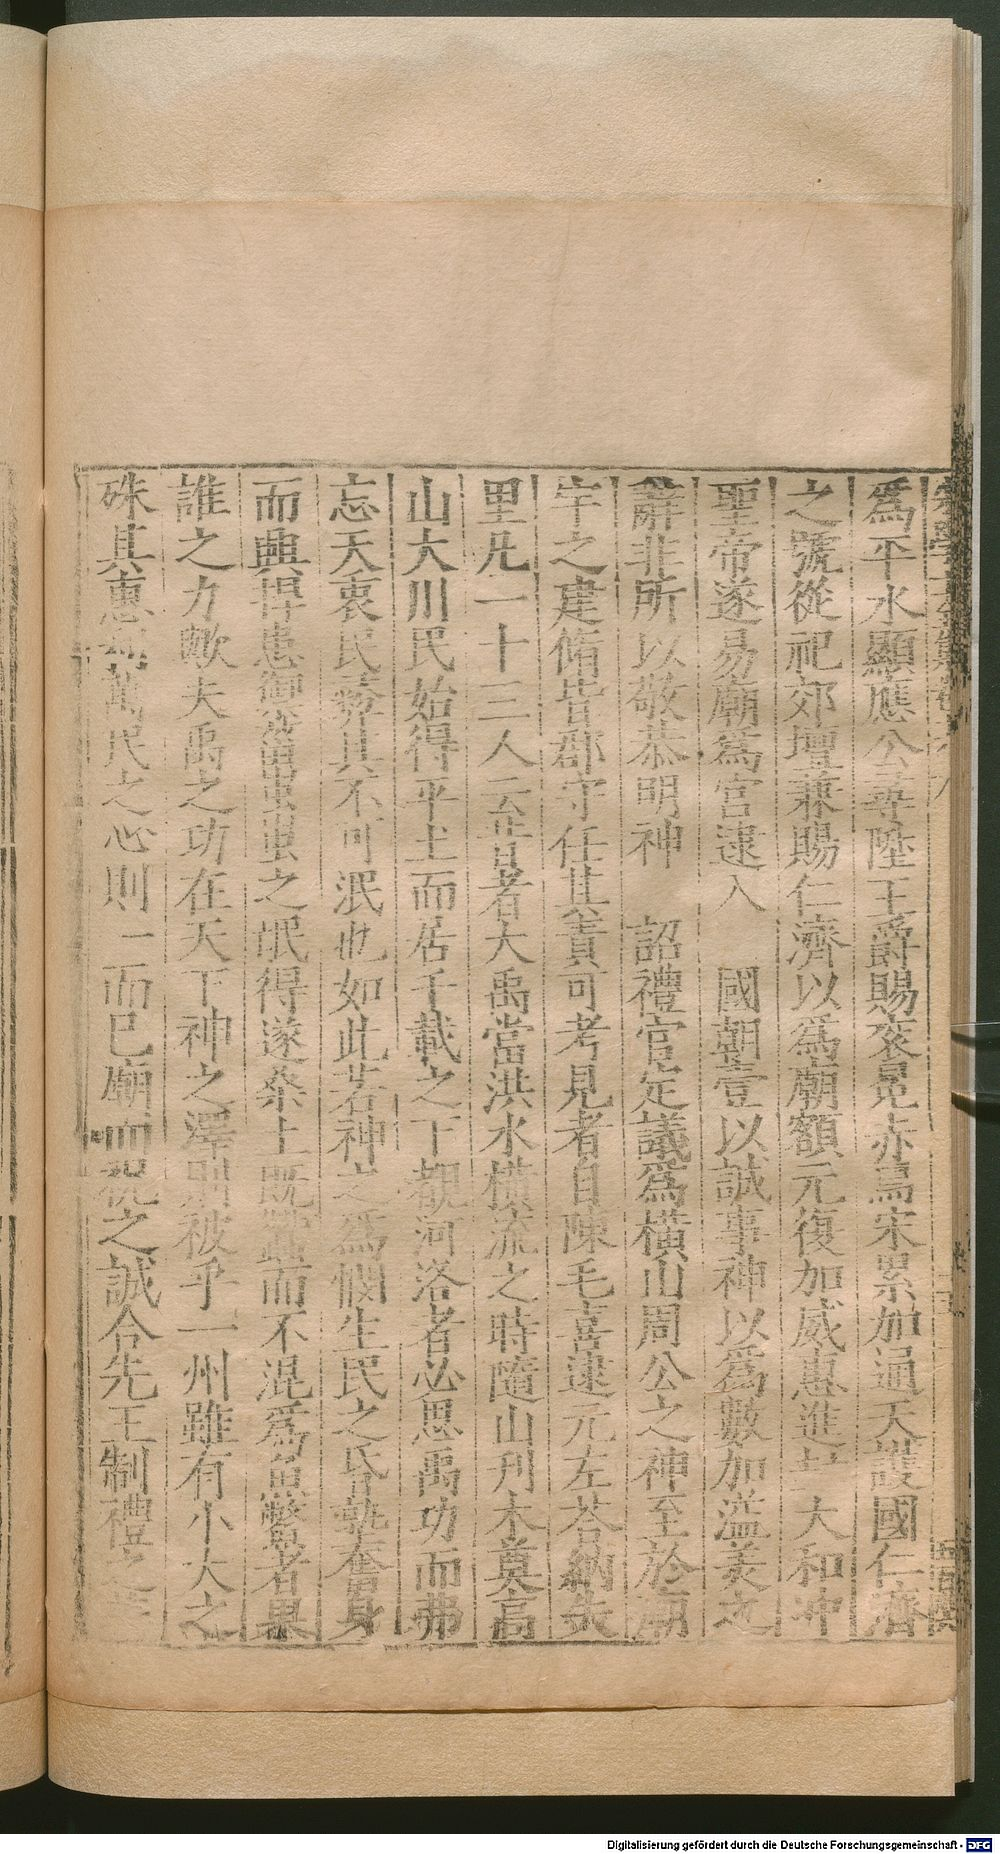 爲平水顯應公尋陞王爵賜袞冕赤舄宋累加通天護國仁濟
之號從祀郊壇兼賜仁濟以爲廟額元復加威惠進封大和冲
聖帝遂易廟爲宮逮入　國朝壹以誠事神以爲數加溢美之
辭非所以敬恭明神　詔禮官定議爲橫山周公之神至於廟
宇之建脩皆郡守任其責可考見者自陳毛喜逮元左荅納失
里凡二十三人云昔者大禹當洪水橫流之時隨山刋木奠高
山大川民始得平土而居千載之下觀河洛者必思禹功而弗
忘天衷民彞其不可泯也如此若神之爲憫生民之昏墊奮身
而興捍患御災蚩蚩之氓得遂桑土既蠶而不混爲魚鱉者果
誰之力歟夫禹之功在天下神之澤則被乎一州雖有小大之
殊其惠萬民之心則一而巳廟而祝之誠合先王制禮之
Digitalisierung gefördert durch die Deutsche Forschungsgemeinschaft - DFG